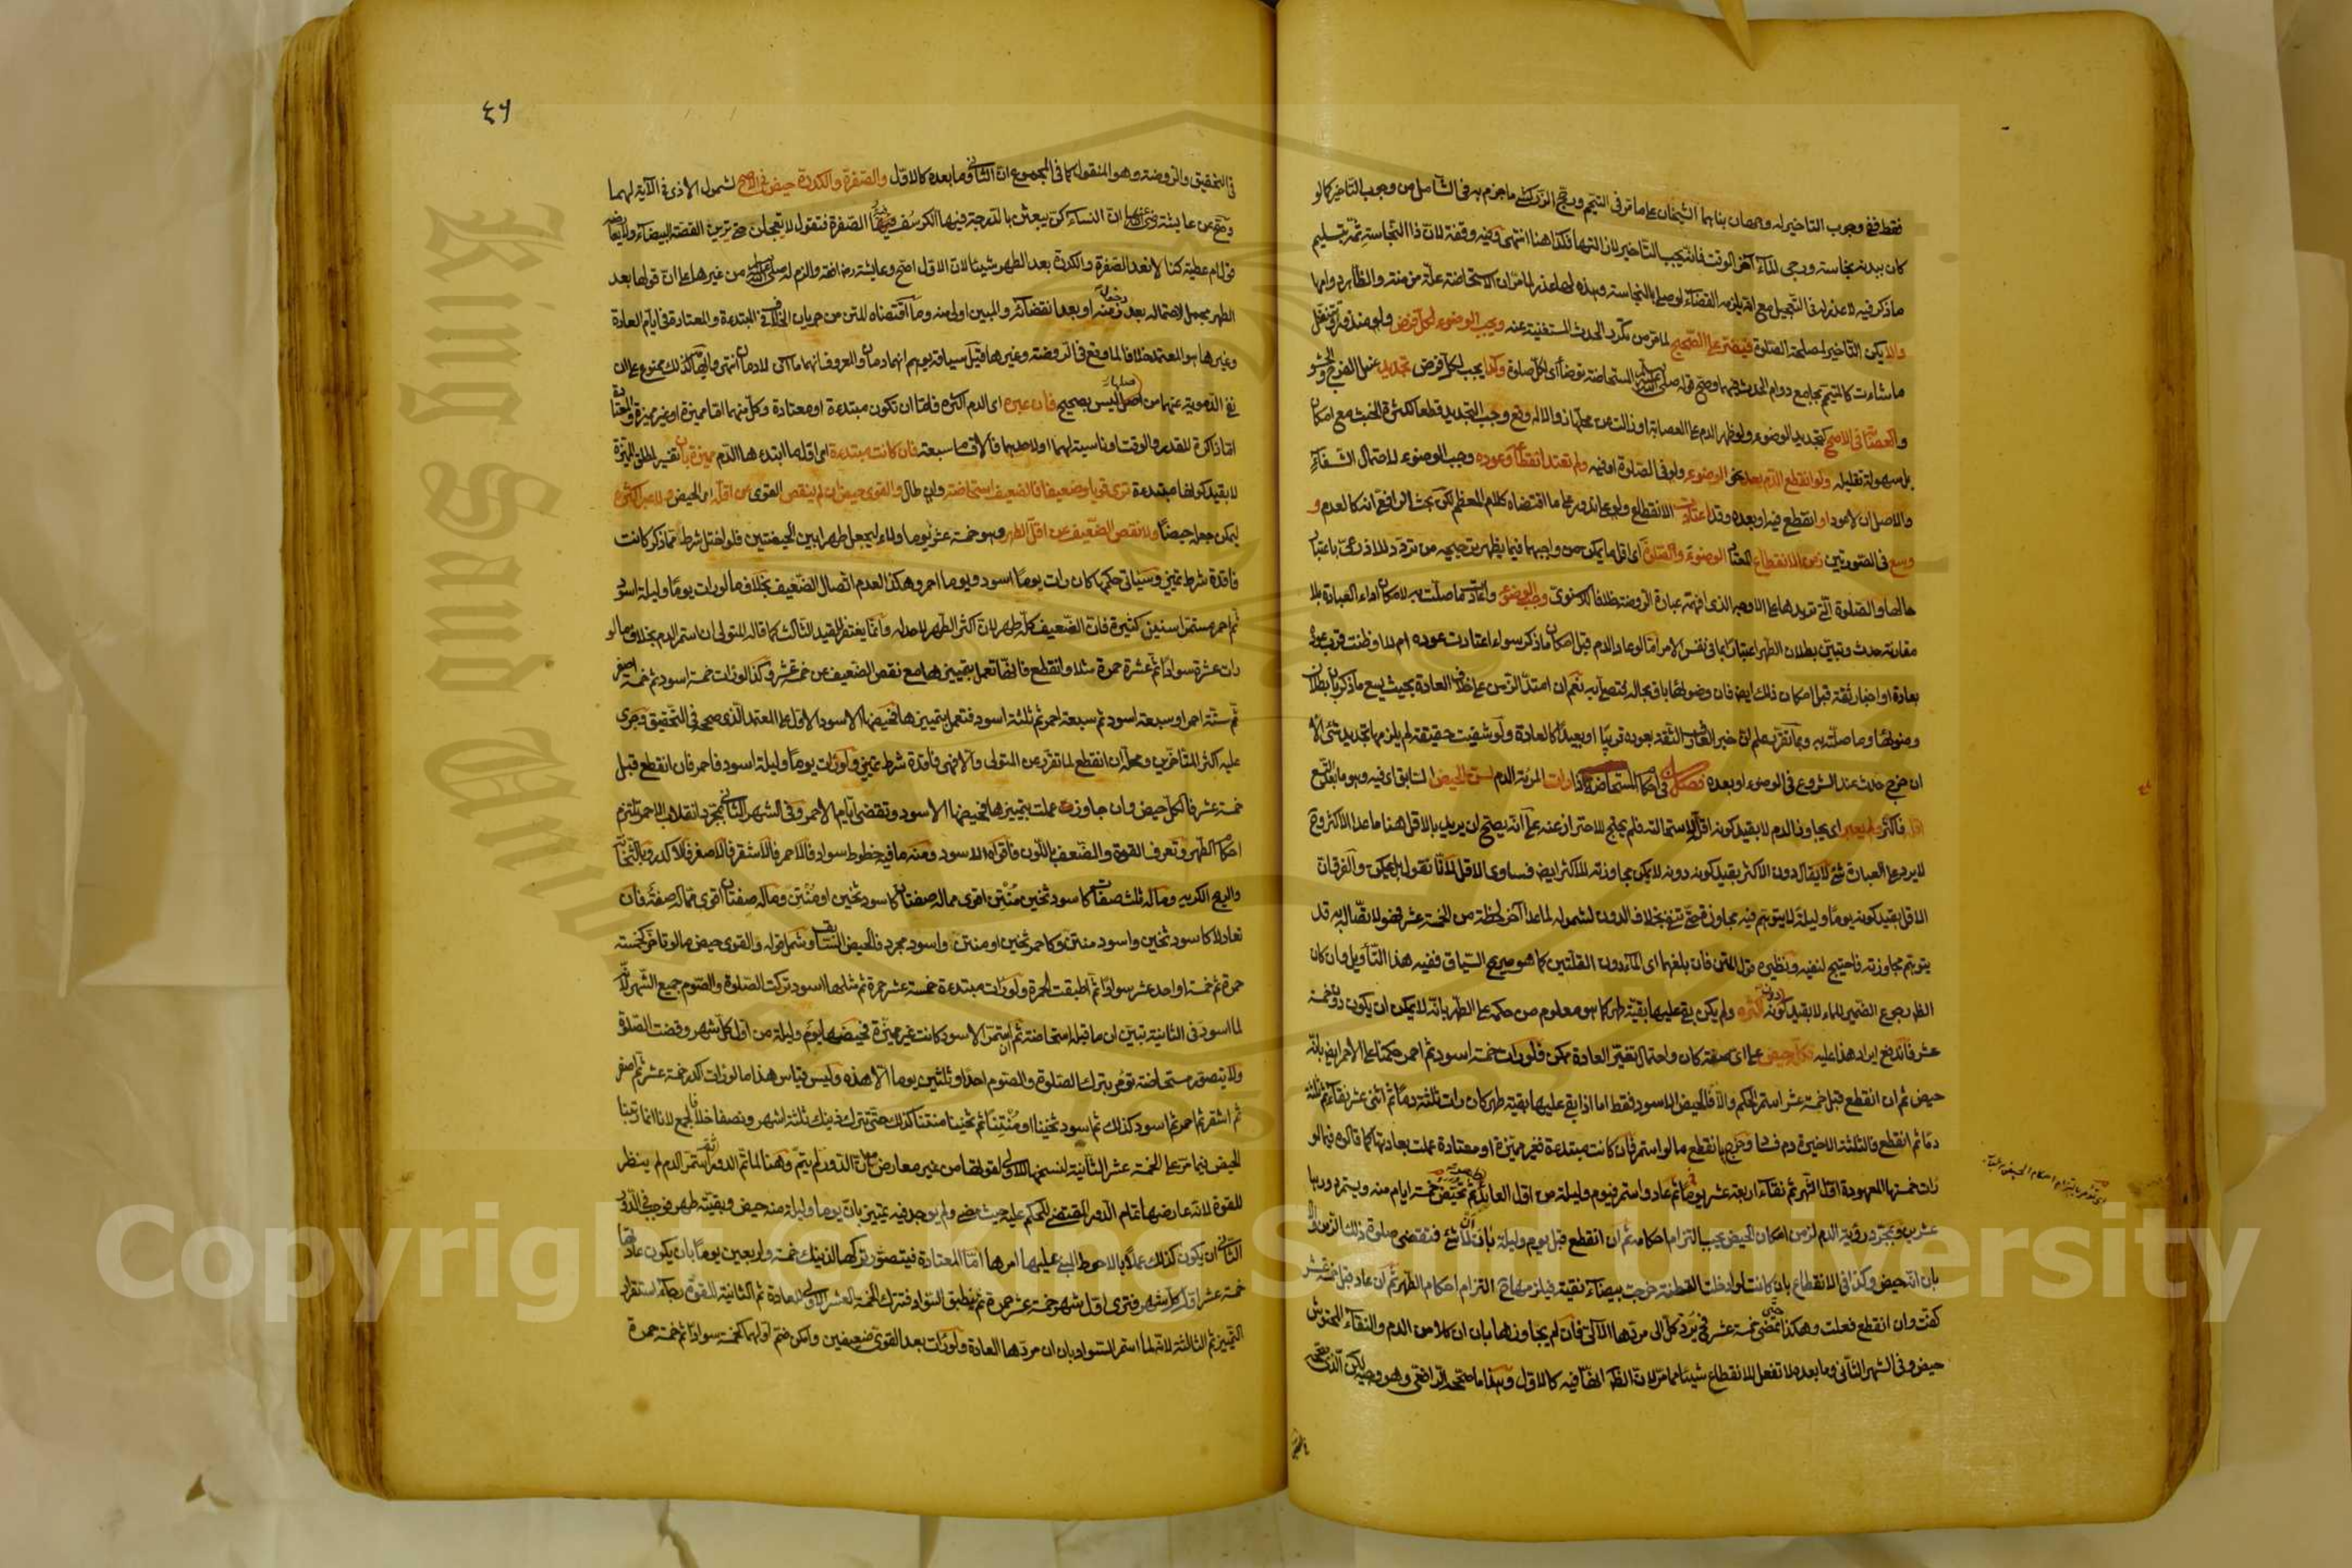 فقط ففي وجوب التاخير له وجهان بناهما الشيخان على ما مر في التيمم ورجح الزركشي ما جزم به في الشامل من وجوب التاخير كما لو
كان ببدنه نجاسة ورجى الماء آخر الوقت فانه يجب التاخير لازالتها فكذا هنا انتهى وفيه وقفة لان ذا النجاسة ثمة بتسليم
ما ذكر فيه لا عذر له في التعجيل مع انه يلزمه القضاء لو صلى بالنجاسة وهذه لها عذر لما مر ان الاستحاضة علة مزمنة والظاهر دوامها
والا يكن التاخير لمصلحة الصلاة فيضر على الصحيح لما مر من تكرر الحدث المستغنية عنه ويجب الوضوء لكل فرض ولو منذورا وتتنفل
ما شاءت كالمتيمم بجامع دوام الحدث فيهما وصح قوله صلى الله عليه وسلم للمستحاضة توضأى لكل صلاة وكذا يجب لكل فرض تجديد غسل الفرج والحشو
والعصابة في الاصح كتجديد الوضوء ولو ظهر الدم على العصابة او زالت عن محلها زوالا له وقع وجب التجديد قطعا لكثرة الخبث مع امكان
بل سهولة تقليله ولو انقطع الدم بعد نحو الوضوء ولو في الصلاة او فيه ولم تعتد انقطاعه وعوده وجب الوضوء لاحتمال الشفاء
والاصل ان لا عود او انقطع فيه او بعده وقد اعتادت الانقطاع ولو على ندور على ما اقتضاه كلام المعظم لكن بحث الرافعي انه كالعدم و
وسع في الصورتين زمن الانقطاع المعتاد الوضوء والصلاة اى اقل ما يمكن من واجبهما فيما يظهر ترجيحه من تردد للاذرعي باعتبار
حالها والصلوة التي تريدها على الاوجه الذي افهمته عبارة الروضة خلافا للاسنوي وجب الوضوء واعادة ما صلت به لامكان اداء العبادة بلا
مقارنة حدث وتبين بطلان الطهر اعتبارا بما في نفس الامر اما لو عاد الدم قبل امكان ما ذكر سواء اعتادت عوده ام لا او ظنت قرب عوده
بعادة او اخبار ثقة قبل امكان ذلك ايضا فان وضوئها باق بحاله فتصلي به نعم ان امتد الزمن على خلاف العادة بحيث يسع ما ذكر بان بطلان
وضوئها وما صلته به وبما تقرر علم ان خبر العارف الثقة بعوده قريبا او بعيدا كالعادة ولو شفيت حقيقة لم يلزمها تجديد شئ الا
ان خرج حدث عند الشروع في الوضوء او بعده فصل في احكام المستحاضة اذا رات المرئة الدم لسن الحيض السابق اى فيه وهو ما بعد التسع
اقله فاكثر ولم يعبر اى يجاوز الدم لا بقيد كونه اقل لاستحالته فلم يحتج للاحتراز عنه على انه يصح ان يريد بالاقل هنا ما عدا الاكثر وح
لا يرد على العبارة شئ لا يقال دون الاكثر بقيد كونه دونه لا يمكن مجاوزته للاكثر ايض فساوى الاقل لانا نقول بل يمكن والفرق ان
الاقل بقيد كونه يوما وليلة لا يتوهم فيه مجاوزة حتى تنفى بخلاف الدون لشموله لما عدا آخر لحظة من الخمسة عشر فهو لاتصاله به قد
يتوهم مجاوزته فاحتيج لنفيه ونظيره قول المتن فان بلغها اى الماء دون القلتين كما هو صريح السياق ففيه هذا التأويل وان كان
الظ رجوع الضمير للماء لا بقيد كونه دون اكثره ولم يكن بقي عليها بقية طهر كما هو معلوم من حكمه على الطهر بانه لا يمكن ان يكون دون خمسة
عشر فاندفع ايراد هذا عليه فكله حيض على اى صفة كان واحتمال تغير العادة ممكن فلو رات خمسة اسود ثم احمر حكمنا على الاحمر ايض بانه
حيض ثم ان انقطع قبل خمسة عشر استمر الحكم والا فالحيض الاسود فقط اما اذا بقي عليها بقية طهر كان رات ثلثة دما ثم اثني عشر نقاء ثم ثلثة
دما ثم انقطع فالثلثة الاخيرة دم فساد وخرج بانقطع ما لو استمر فان كانت مبتدءة فغير مميزة او معتادة عملت بعادتها كما قالوه فيما لو
رات خمستها المعهودة اول الشهر ثم نقاء اربعة عشر يوما ثم عاد واستمر فيوم وليلة من اول العائد طهر ثم تحيض خمسة ايام منه ويستمر دورها
عشرين وبمجرد رؤية الدم لزمن امكان الحيض يجب التزام احكامه ثم ان انقطع قبل يوم وليلة بان ان لا شئ فتقضى صلوة ذلك الزمن والا
بان انه حيض وكذا في الانقطاع بان كانت لو ادخلت القطنة خرجت بيضاء نقية فيلزمها ح التزام احكام الطهر ثم ان عاد قبل خمسة عشر
كفت وان انقطع فعلت وهكذا حتى تمضى خمسة عشر فح ترد كل الى مردها الآتي فان لم يجاوزها بان ان كلا من الدم والنقاء المحتوش
حيض وفي الشهر الثاني وما بعده لا تفعل للانقطاع شيئا مما مر لان الظ انها فيه كالاول وهذا ما صححه الرافعي وهو وجيه لكن الذي صححه
٤٦
في التحقيق والروضة وهو المنقول كما في المجموع ان الثاني وما بعده كالاول والصفرة والكدرة حيض في الاصح لشمول الاذى في الآية لهما
وصح عن عايشة رضي الله عنها ان النساء كن يبعثن بالدرجة فيها الكرسف فيه الصفرة فتقول لا تعجلن حتى ترين القصة البيضاء ولا يعارضه
قول ام عطية كنا لا نعد الصفرة والكدرة بعد الطهر شيئا لان الاول اصح وعايشة افقه والزم له صلى الله عليه وسلم من غيرها على ان قولها بعد
الطهر مجمل لاحتماله بعد دخول زمنه او بعد انقضائه والمبين اولى منه وما اقتضاه المتن من جريان الخلاف في المبتدءة والمعتادة في ايام العادة
وغيرها هو المعتمد خلافا لما وقع في الروضة وغيرها قيل سياقه يوهم انهما دمان والمعروف انهما ماآن لا دمان انتهى وايهامه لذلك ممنوع على ان
نفي الدموية عنهما من اصلها ليس بصحيح فان عبره اى الدم اكثره فاما ان تكون مبتدءة او معتادة وكل منهما اما مميزة او غير مميزة والمعتادة
اما ذاكرة للقدر والوقت او ناسية لهما او لاحدهما فالاقسام سبعة فان كانت مبتدءة اى اول ما ابتدءها الدم مميزة بان تفسير لمطلق المميزة
لا بقيد كونها مبتدءة ترى قويا وضعيفا فالضعيف استحاضة وان طال والقوى حيض ان لم ينقص القوى عن اقله اى الحيض ولا عبر اكثره
ليمكن جعله حيضا ولا نقص الضعيف عن اقل الطهر وهو خمسة عشر يوما ولاء ليجعل طهرا بين الحيضتين فلو اختل شرط مما ذكر كانت
فاقدة شرط تمييز وسياتي حكمها كان رات يوما اسود ويوما احمر وهكذا لعدم اتصال الضعيف بخلاف ما لو رات يوما وليلة اسود
ثم احمر مستمر سنين كثيرة فان الضعيف كله طهر لان اكثر الطهر لا حد له وانما يفتقر للقيد الثالث كما قاله المتولي ان استمر الدم بخلاف ما لو
رات عشرة سوادا ثم عشرة حمرة مثلا وانقطع فانها تعمل بتمييزها مع نقص الضعيف عن خمسة عشر وكذا لو رات خمسة اسود ثم خمسة اصفر
ثم ستة احمر او سبعة اسود ثم سبعة احمر ثم ثلثة اسود فتعمل بتمييزها فحيضها الاسود الاول على المعتمد الذي صححه في التحقيق وجرى
عليه اكثر المتاخرين ومحله ان انقطع لما تقرر عن المتولي والا فهي فاقدة شرط تمييز ولو رات يوما وليلة اسود فاحمر فان انقطع قبل
خمسة عشر فالكل حيض وان جاوز عملت بتمييزها فحيضها الاسود وتقضى ايام الاحمر وفي الشهر الثاني بمجرد انقلابه للاحمر تلتزم
احكام الطهر وتعرف القوة والضعف باللون فاقواه الاسود ومنه ما فيه خطوط سواد فالاحمر فالاشقر فالاصفر فالاكدر وبالثخانة
والريح الكريه وما له ثلث صفات كاسود ثخين منتن اقوى مما له صفتان كاسود ثخين او منتن وما له صفتان اقوى مما له صفة فان
تعادلا كاسود ثخين واسود منتن وكاحمر ثخين او منتن واسود مجرد فالحيض السابق وشمل قوله والقوى حيض ما لو تاخر كخمسة
حمرة ثم خمسة او احد عشر سوادا ثم اطبقت الحمرة ولو رات مبتدءة خمسة عشر حمرة ثم مثلها اسود تركت الصلوة والصوم جميع الشهر لانه
لما اسود في الثانية تبين ان ما قبله استحاضة ثم ان استمر الاسود كانت غير مميزة فحيضها يوم وليلة من اول كل شهر وقضت الصلوة
ولا يتصور مستحاضة تؤمر بترك الصلوة والصوم احدا وثلثين يوما الا هذه وليس قياس هذا ما لو رات اكدر خمسة عشر ثم اصفر
ثم اشقر ثم احمر ثم اسود كذلك ثم اسود ثخينا او منتنا ثم ثخينا منتنا كذلك حتى تترك ذينك ثلثة اشهر ونصفا خلافا لجمع لانا انما رتبنا
الحيض فيما مر على الخمسة عشر الثانية لنسخها للاولى لقوتها من غير معارض مع ان الدور لم يتم وهنا لما تم الدور استمر الدم لم ينظر
للقوة لانه عارضها تمام الدور المقتضى للحكم عليه حيث مضى ولم يوجد فيه تمييز بان يوما وليلة منه حيض وبقيته طهر فوجب في الدور
الثاني ان يكون كذلك عملا بالاحوط المبني عليها امرها اما المعتادة فيتصور تركها لذينك خمسة واربعين يوما بان يكون عادتها
خمسة عشر اول كل شهر فترى اول شهر خمسة عشر حمرة ثم ينطبق السواد فتترك الخمسة العشر الاولى للعادة ثم الثانية للقوة رجاء استقرار
التمييز ثم الثالثة لانه لما استمر السواد بان ان مردها العادة ولو رات بعد القوى ضعيفين وامكن ضم اولهما كخمسة سوادا ثم خمسة حمرة